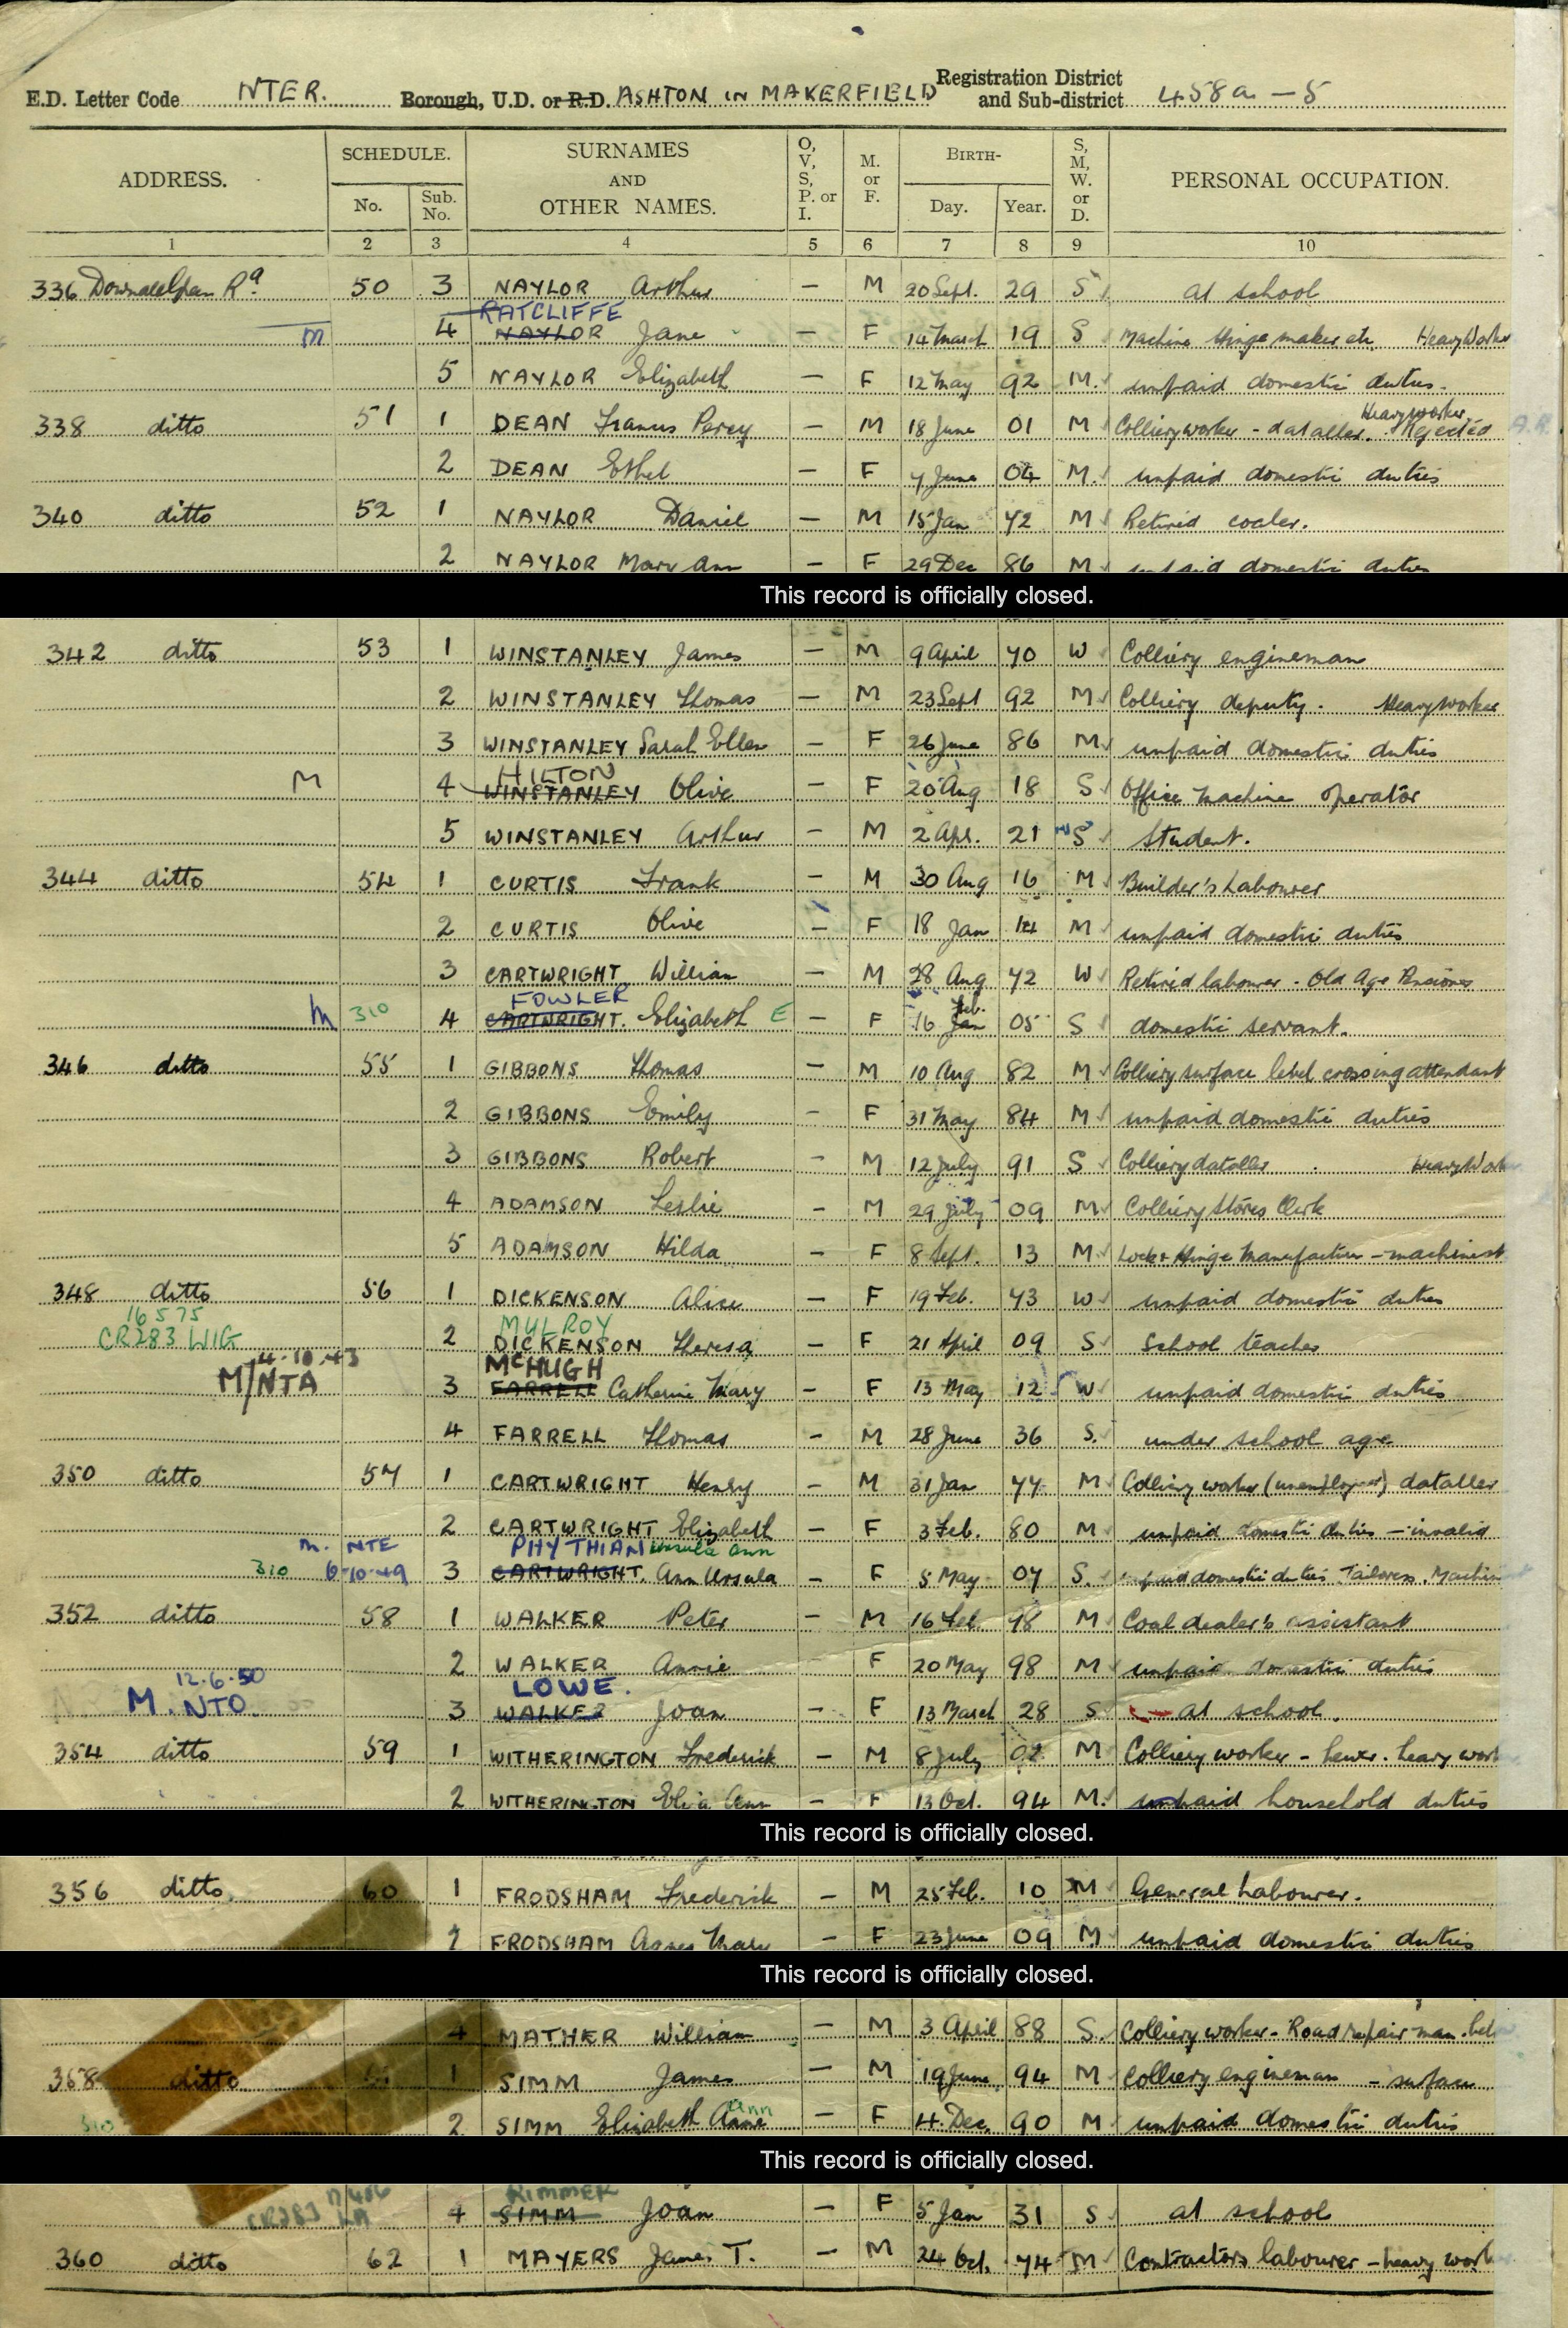 E.D. Letter Code NTER. Borough, U.D. or R.D. ASHTON IN MAKERFIELD Registration District and Sub-district 458a - 5
ADDRESS. SCHEDULE. No. Sub. No. SURNAMES AND OTHER NAMES. O, V, S, P. or I. M. or F. BIRTH- Day. Year. S, M, W. or D. PERSONAL OCCUPATION.
1 2 3 4 5 6 7 8 9 10
336 Rd. 50 3 NAYLOR Arthur — M 20 Sept. 29 S at school
RATCLIFFE
M 4 NAYLOR Jane — F 14 March 19 S Machine Hinge maker etc. Heavy Worker
5 NAYLOR Elizabeth — F 12 May 92 M. unpaid domestic duties.
Heavy worker
338 ditto 51 1 DEAN Francis Percy — M 18 June 01 M Colliery worker - dataller. Rejected A.R.
2 DEAN Ethel — F 7 June 04 M. unpaid domestic duties
340 ditto 52 1 NAYLOR Daniel — M 15 Jan 72 M Retired coaler.
2 NAYLOR Mary Ann — F 29 Dec 86 M unpaid domestic duties
This record is officially closed.
342 ditto 53 1 WINSTANLEY James — M 9 April 70 W Colliery engineman
2 WINSTANLEY Thomas — M 23 Sept 92 M Colliery deputy. Heavy worker
3 WINSTANLEY Sarah Ellen — F 26 June 86 M unpaid domestic duties
HILTON
M 4 WINSTANLEY Olive — F 20 Aug 18 S Office machine operator
5 WINSTANLEY Arthur — M 2 Apr. 21 S Student.
344 ditto 54 1 CURTIS Frank — M 30 Aug 16 M Builder's Labourer
2 CURTIS Olive — F 18 Jan 14 M unpaid domestic duties
3 CARTWRIGHT William — M 28 Aug 72 W Retired labourer - Old Age Pensioner
FOWLER Feb.
M 310 4 CARTWRIGHT. Elizabeth E — F 16 Jan 05 S domestic servant.
346 ditto 55 1 GIBBONS Thomas — M 10 Aug 82 M Colliery surface level crossing attendant
2 GIBBONS Emily — F 31 May 84 M unpaid domestic duties
3 GIBBONS Robert — M 12 July 91 S Colliery dataller Heavy Work
4 ADAMSON Leslie — M 29 July 09 M Colliery Stores Clerk
5 ADAMSON Hilda — F 8 Sept. 13 M Lock & Hinge Manufacture - machinist
348 ditto 56 1 DICKENSON Alice — F 19 Feb. 73 W unpaid domestic duties
16575 MULROY
CR283 WIG 2 DICKENSON Theresa — F 21 April 09 S School teacher
4.10.43 MCHUGH
M/NTA 3 FARRELL Catherine Mary — F 13 May 12 W unpaid domestic duties
4 FARRELL Thomas — M 28 June 36 S. under school age
350 ditto 57 1 CARTWRIGHT Henry — M 31 Jan 77 M Colliery worker (unemployed) dataller
2 CARTWRIGHT Elizabeth — F 3 Feb. 80 M unpaid domestic duties - invalid
M. NTE PHYTHIAN Ursula Ann
310 6-10-49 3 CARTWRIGHT. Ann Ursula — F 5 May 07 S. unpaid domestic duties Tailoress. Machin
352 ditto 58 1 WALKER Peter — M 16 Feb. 98 M Coal dealer's assistant
2 WALKER Annie — F 20 May 98 M unpaid domestic duties
12.6.50 LOWE.
M. NTO. 3 WALKER Joan — F 13 March 28 S at school.
354 ditto 59 1 WITHERINGTON Frederick — M 8 July 02 M Colliery worker - hewer. heavy work
2 WITHERINGTON Eliza Ann — F 13 Oct. 94 M. unpaid household duties
This record is officially closed.
356 ditto. 60 1 FRODSHAM Frederick — M 25 Feb. 10 M General Labourer.
2 FRODSHAM Agnes Mary — F 23 June 09 M unpaid domestic duties
This record is officially closed.
4 MATHER William — M 3 April 88 S. Colliery worker - Road repair man. bel
358 ditto 1 SIMM James — M 19 June 94 M Colliery engineman - surface
Ann
310 2 SIMM Elizabeth Anne — F 4. Dec. 90 M unpaid domestic duties
This record is officially closed.
RIMMER
CR283 LA 4 SIMM Joan — F 5 Jan 31 S at school
360 ditto 62 1 MAYERS James T. — M 24 Oct. 74 M Contractors labourer - heavy work